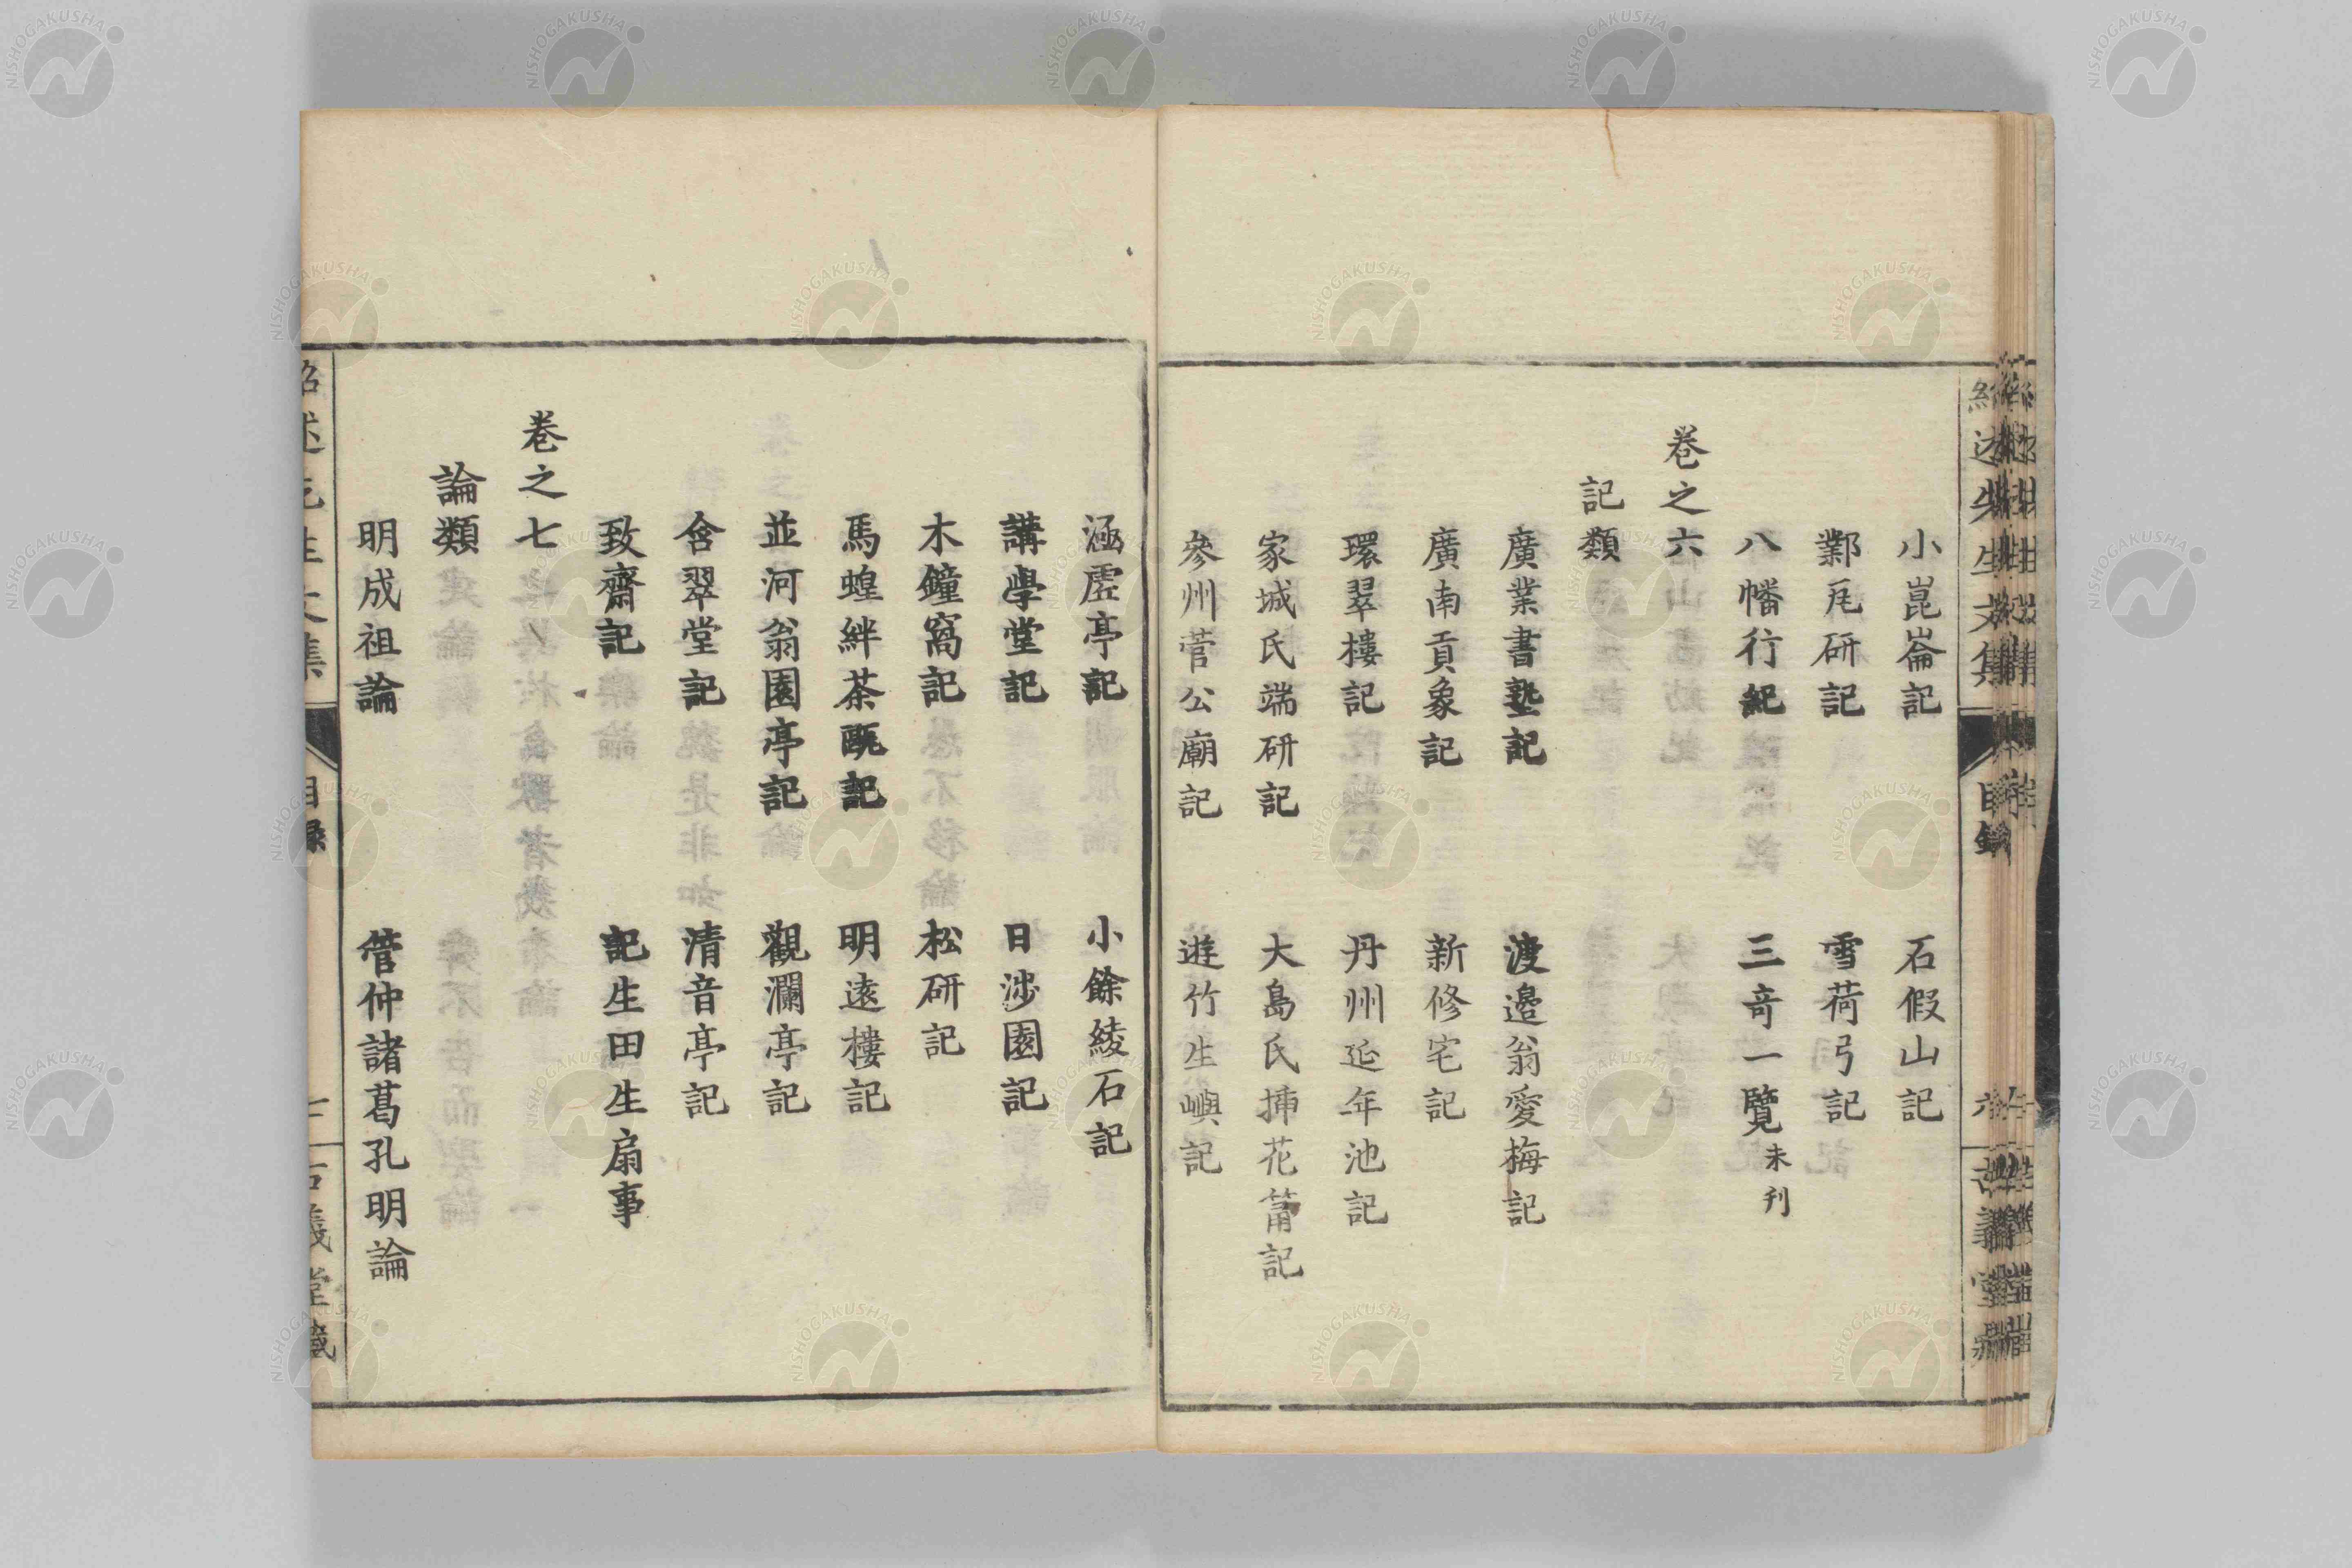 小崑崙記　石假山記
鄴瓦研記　雪荷弓記
八幡行紀　三奇一覽未刋
卷之六
記類
廣業書塾記　渡邉翁愛梅記
廣南貢象記　新修宅記
環翠樓記　丹州延年池記
家城氏端研記　大島氏揷花筩記
參州菅公廟記　遊竹生嶼記
涵虛亭記　小餘綾石記
講學堂記　日涉園記
木鐘窩記　松研記
馬蝗絆茶甌記　明遠樓記
並河翁園亭記　觀瀾亭記
含翠堂記　清音亭記
致齋記　記生田生扇事
卷之七
論類
明成祖論　管仲諸葛孔明論
目錄
NISHOGAKUSHA